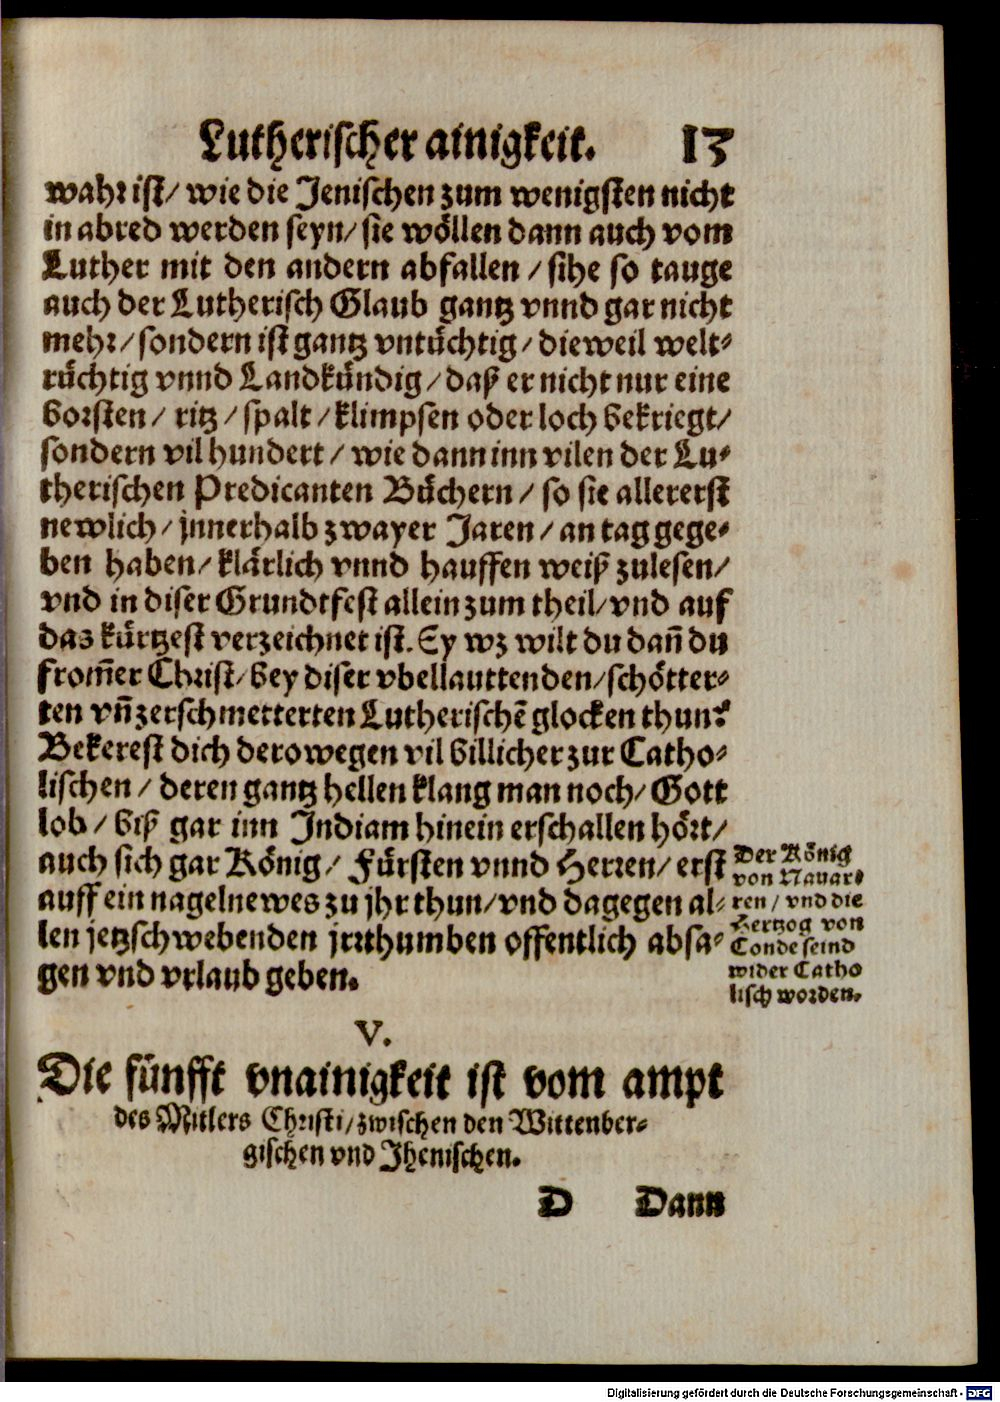 Lutherischer ainigkeit. 13
wahr ist/ wie die Jenischen zum wenigsten nicht
in abred werden seyn/ sie wöllen dann auch vom
Luther mit den andern abfallen / sihe so tauge
auch der Lutherisch Glaub gantz vnnd gar nicht
mehr/ sondern ist gantz vntüchtig/ dieweil welt-
rüchtig vnnd Landkündig/ daß er nicht nur eine
borsten/ ritz/ spalt/ klimpsen oder loch bekriegt/
sondern vil hundert/ wie dann inn vilen der Lu-
therischen Predicanten Büchern/ so sie allererst
newlich/ jnnerhalb zwayer Jaren/ an tag gege-
ben haben/ klärlich vnnd hauffen weiß zulesen/
vnd in diser Grundtfest allein zum theil/ vnd auf
das kürtzest verzeichnet ist. Ey wz wilt du dañ du
from̃er Christ/ bey diser vbellauttenden/ schötter-
ten vñ zerschmetterten Lutherischẽ glocken thun?
Bekerest dich derowegen vil billicher zur Catho-
lischen/ deren gantz hellen klang man noch/ Gott
lob/ biß gar inn Indiam hinein erschallen hört/
auch sich gar König/ Fürsten vnnd Herren/ erst
auff ein nagelnewes zu jhr thun/ vnd dagegen al-
len jetzschwebenden jrrthumben offentlich absa-
gen vnd vrlaub geben.
Der König
von Nauar-
ren/ vnd die
Hertzog von
Conde seind
wider Catho
lisch worden.
V.
Die fünfft vnainigkeit ist vom ampt
des Mitlers Christi/ zwischen den Wittenber-
gischen vnd Jhenischen.
D Dann
Digitalisierung gefördert durch die Deutsche Forschungsgemeinschaft - DFG